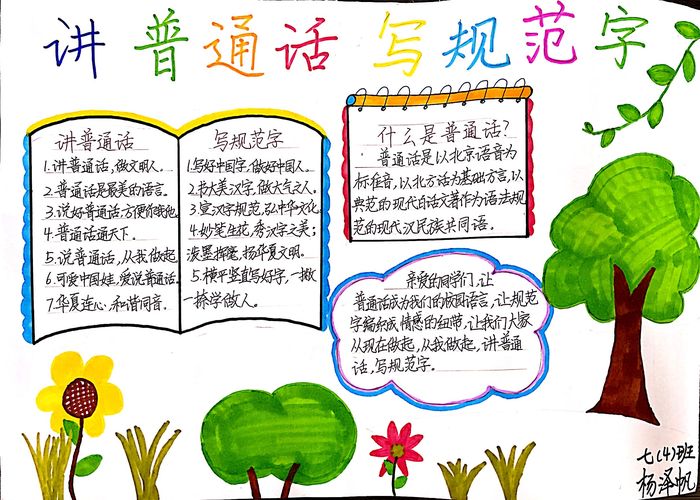 讲普通话 写规范字
讲普通话
1.讲普通话,做文明人。
2.普通话是最美的语言。
3.说好普通话,方便你我他
4.普通话通天下.
5.说普通话,从我做起
6.可爱中国娃,爱说普通话.
7.华夏连心,和谐同音.
写规范字
1.写好中国字,做好中国人。
2.书大美汉字,做大气之人。
3.宣汉字规范,弘中华文化
4.妙笔生花,秀汉字之美;
泼墨挥毫,扬华夏文明.
5.横平竖直写好字,一撇
一捺学做人。
什么是普通话?
普通话是以北京语音为
标准音,以北方话为基础方言,以
典范的现代白话文著作为语法规
范的现代汉民族共同语.
亲爱的同学们,让
普通话成为我们的校园语言,让规范
字编织成情感的纽带,让我们大家
从现在做起,从我做起,讲普通
话,写规范字.
七(4)班
杨泽帆